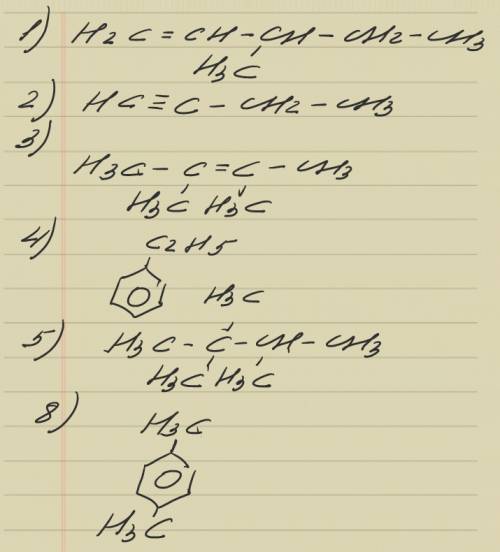 1) H2C = CH - CH - CH2 - CH3
H3C
2) HC ≡ C - CH2 - CH3
3)
H3C - C = C - CH3
H3C H3C
4) C2H5
H3C
5) H3C - C - CH - CH3
H3C H3C
8) H3C
H3C